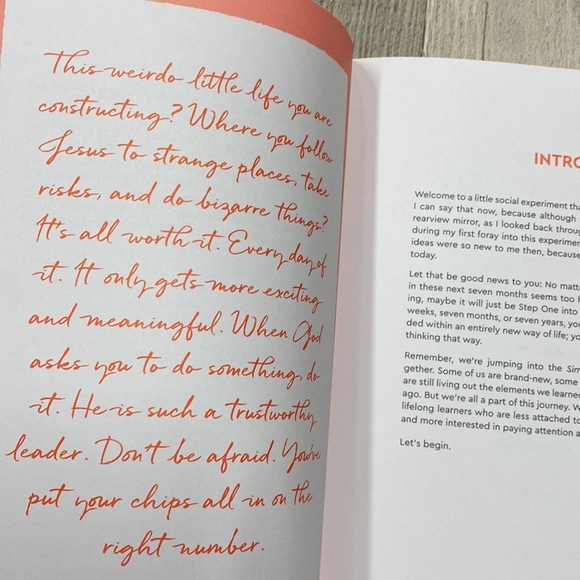 This weirdo little life you are
constructing? Where you follow
Jesus to strange places, take
risks, and do bizarre things?
It's all worth it. Every day of
it. It only gets more exciting
and meaningful. When God
asks you to do something, do
it. He is such a trustworthy
leader. Don't be afraid. You've
put your chips all in on the
right number.
INTRO
Welcome to a little social experiment tha
I can say that now, because although
rearview mirror, as I looked back throug
during my first foray into this experimen
ideas were so new to me then, because
today.
Let that be good news to you: No matte
in these next seven months seems too h
ing, maybe it will just be Step One into
weeks, seven months, or seven years, you
ded within an entirely new way of life; yo
thinking that way.
Remember, we're jumping into the Sim
gether. Some of us are brand-new, some
are still living out the elements we learned
ago. But we're all a part of this journey. W
lifelong learners who are less attached to
and more interested in paying attention a
Let's begin.